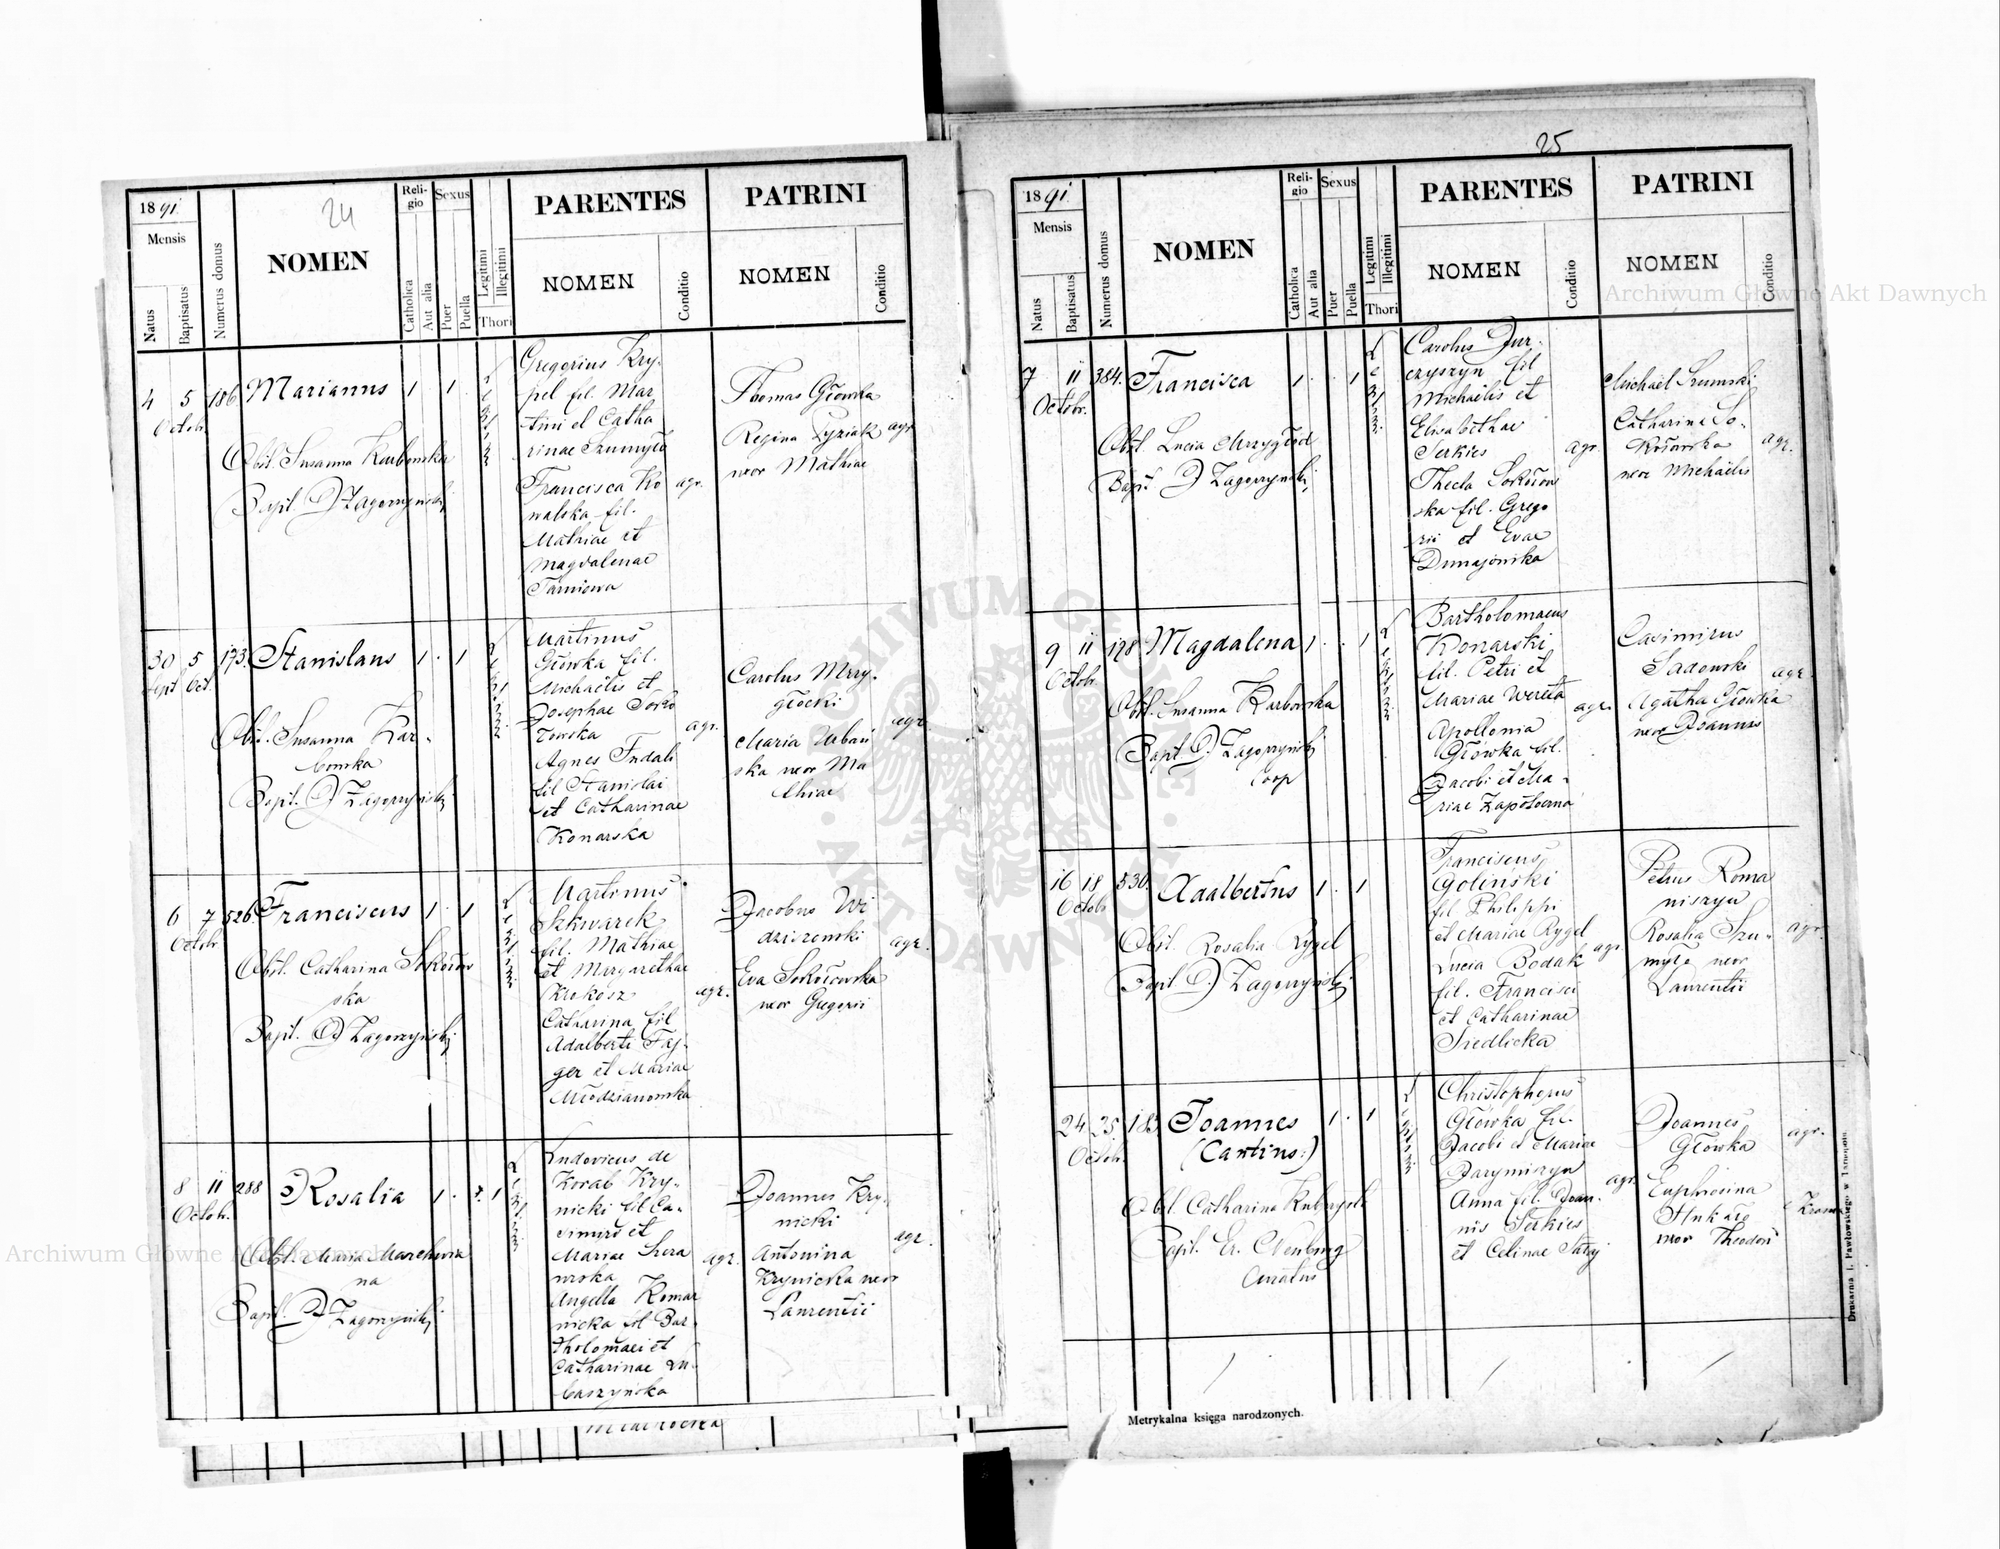 24
1891
Mensis
Natus
Baptisatus
Numerus domus
NOMEN
Religio
Catholica
Aut alia
Sexus
Puer
Puella
Legitimi
Illegitimi
Thori
PARENTES
NOMEN
Conditio
PATRINI
NOMEN
Conditio
4 5 186 Marianus 1 1
Octob.
Obst. Susanna Karbowska
Bapt. D Zagorzynski
Gregorius Kry-
pel fil. Mar
tini et Catha
rinae Szumyło
Francisca Ko
walska fil.
Mathiae et
Magdalenae
agr.
Thomas Główka
Regina Zyziak
uxor Mathiae
agr.
30 5 173. Stanislaus 1 1
Sept Oct.
Obst. Susanna Kar-
bowska
Bapt. D Zagorzynski
Martinus
Główka fil.
Michaëlis et
Josephae Soko
łowska
Agnes
fil Stanislai
et Catharinae
Konarska
agr.
Carolus Mrzy-
głocki
Maria Urbań
ska uxor Ma
thiae
agr.
6 7 526. Franciscus 1 1
Octobr
Obst. Catharina Sokołow
ska
Bapt. D Zagorzyński
Martinus
Szkwarek
fil. Mathiae
et Margarethae
Krokosz
Catharina fil
Adalberti Faj-
ger et Mariae
Młodzianowska
agr.
Jacobus Wi
dziszewski
Eva Sokołowska
uxor Gregorii
agr.
8 11 288 Rosalia 1 1
Octob.
Obst. Maria Marchewia
na
Bapt. D Zagorzyński
Ludovicus de
Korab Kry-
nicki fil Ca-
simiri et
Mariae Szera
wska
Angella Komar
nicka fil Bar-
tholomaei et
Catharinae Lu-
baszynska
agr.
Joannes Kry-
nicki
Antonina
Krynicka uxor
Laurentii
agr.
25
1891
Mensis
Natus
Baptisatus
Numerus domus
NOMEN
Religio
Catholica
Aut alia
Sexus
Puer
Puella
Legitimi
Illegitimi
Thori
PARENTES
NOMEN
Conditio
PATRINI
NOMEN
Conditio
7 11 384. Francisca 1 1
Octobr.
Obst. Lucia Mrzygłod
Bapt. D Zagorzynski
Carolus Jur-
czyszyn fil
Michaëlis et
Elisabethae
Serkies
Thecla Sokołow
ska fil. Grego
rii et Evae
Dunajowska
agr.
Michaël Szumski
Catharina So-
kołowska
uxor Michaëlis
agr.
9 11 198 Magdalena 1 1
Octob.
Obst. Susanna Karbowska
Bapt. D. Zagorzynski
Coop
Bartholomaeus
Konarski
fil. Petri et
Mariae Wereta
Apollonia
Główka fil.
Jacobi et Ma-
riae Zapotoczna
agr.
Casimirus
Sadowski
Agatha Główka
uxor Joannis
agr.
16 18 530. Adalbertus 1 1
Octob
Obst. Rosalia Rygel
Bapt. D Zagorzynski
Franciscus
Golinski
fil Philippi
et Mariae Rygel
Lucia Bodak
fil. Francisci
et Catharinae
Siedlicka
agr.
Petrus Roma
niszyn
Rosalia Szu-
myło uxor
Laurentii
agr.
24 25 183. Joannes 1 1
Octob. (Cantius:)
Obst. Catharina
Bapt. Er.
Curatus
Christophorus
Główka fil.
Jacobi et Mariae
Darymiszyn
Anna fil. Joan-
nis Serkies
et Celinae
agr.
Joannes
Główka
Euphrosina
uxor Theodori
agr.
Metrykalna księga narodzonych.
Drukarnia J. Pawłowskiego w Tarnopolu.
Archiwum Główne Akt Dawnych
Archiwum Główne Akt Dawnych
ARCHIWUM GŁÓWNE
AKT DAWNYCH